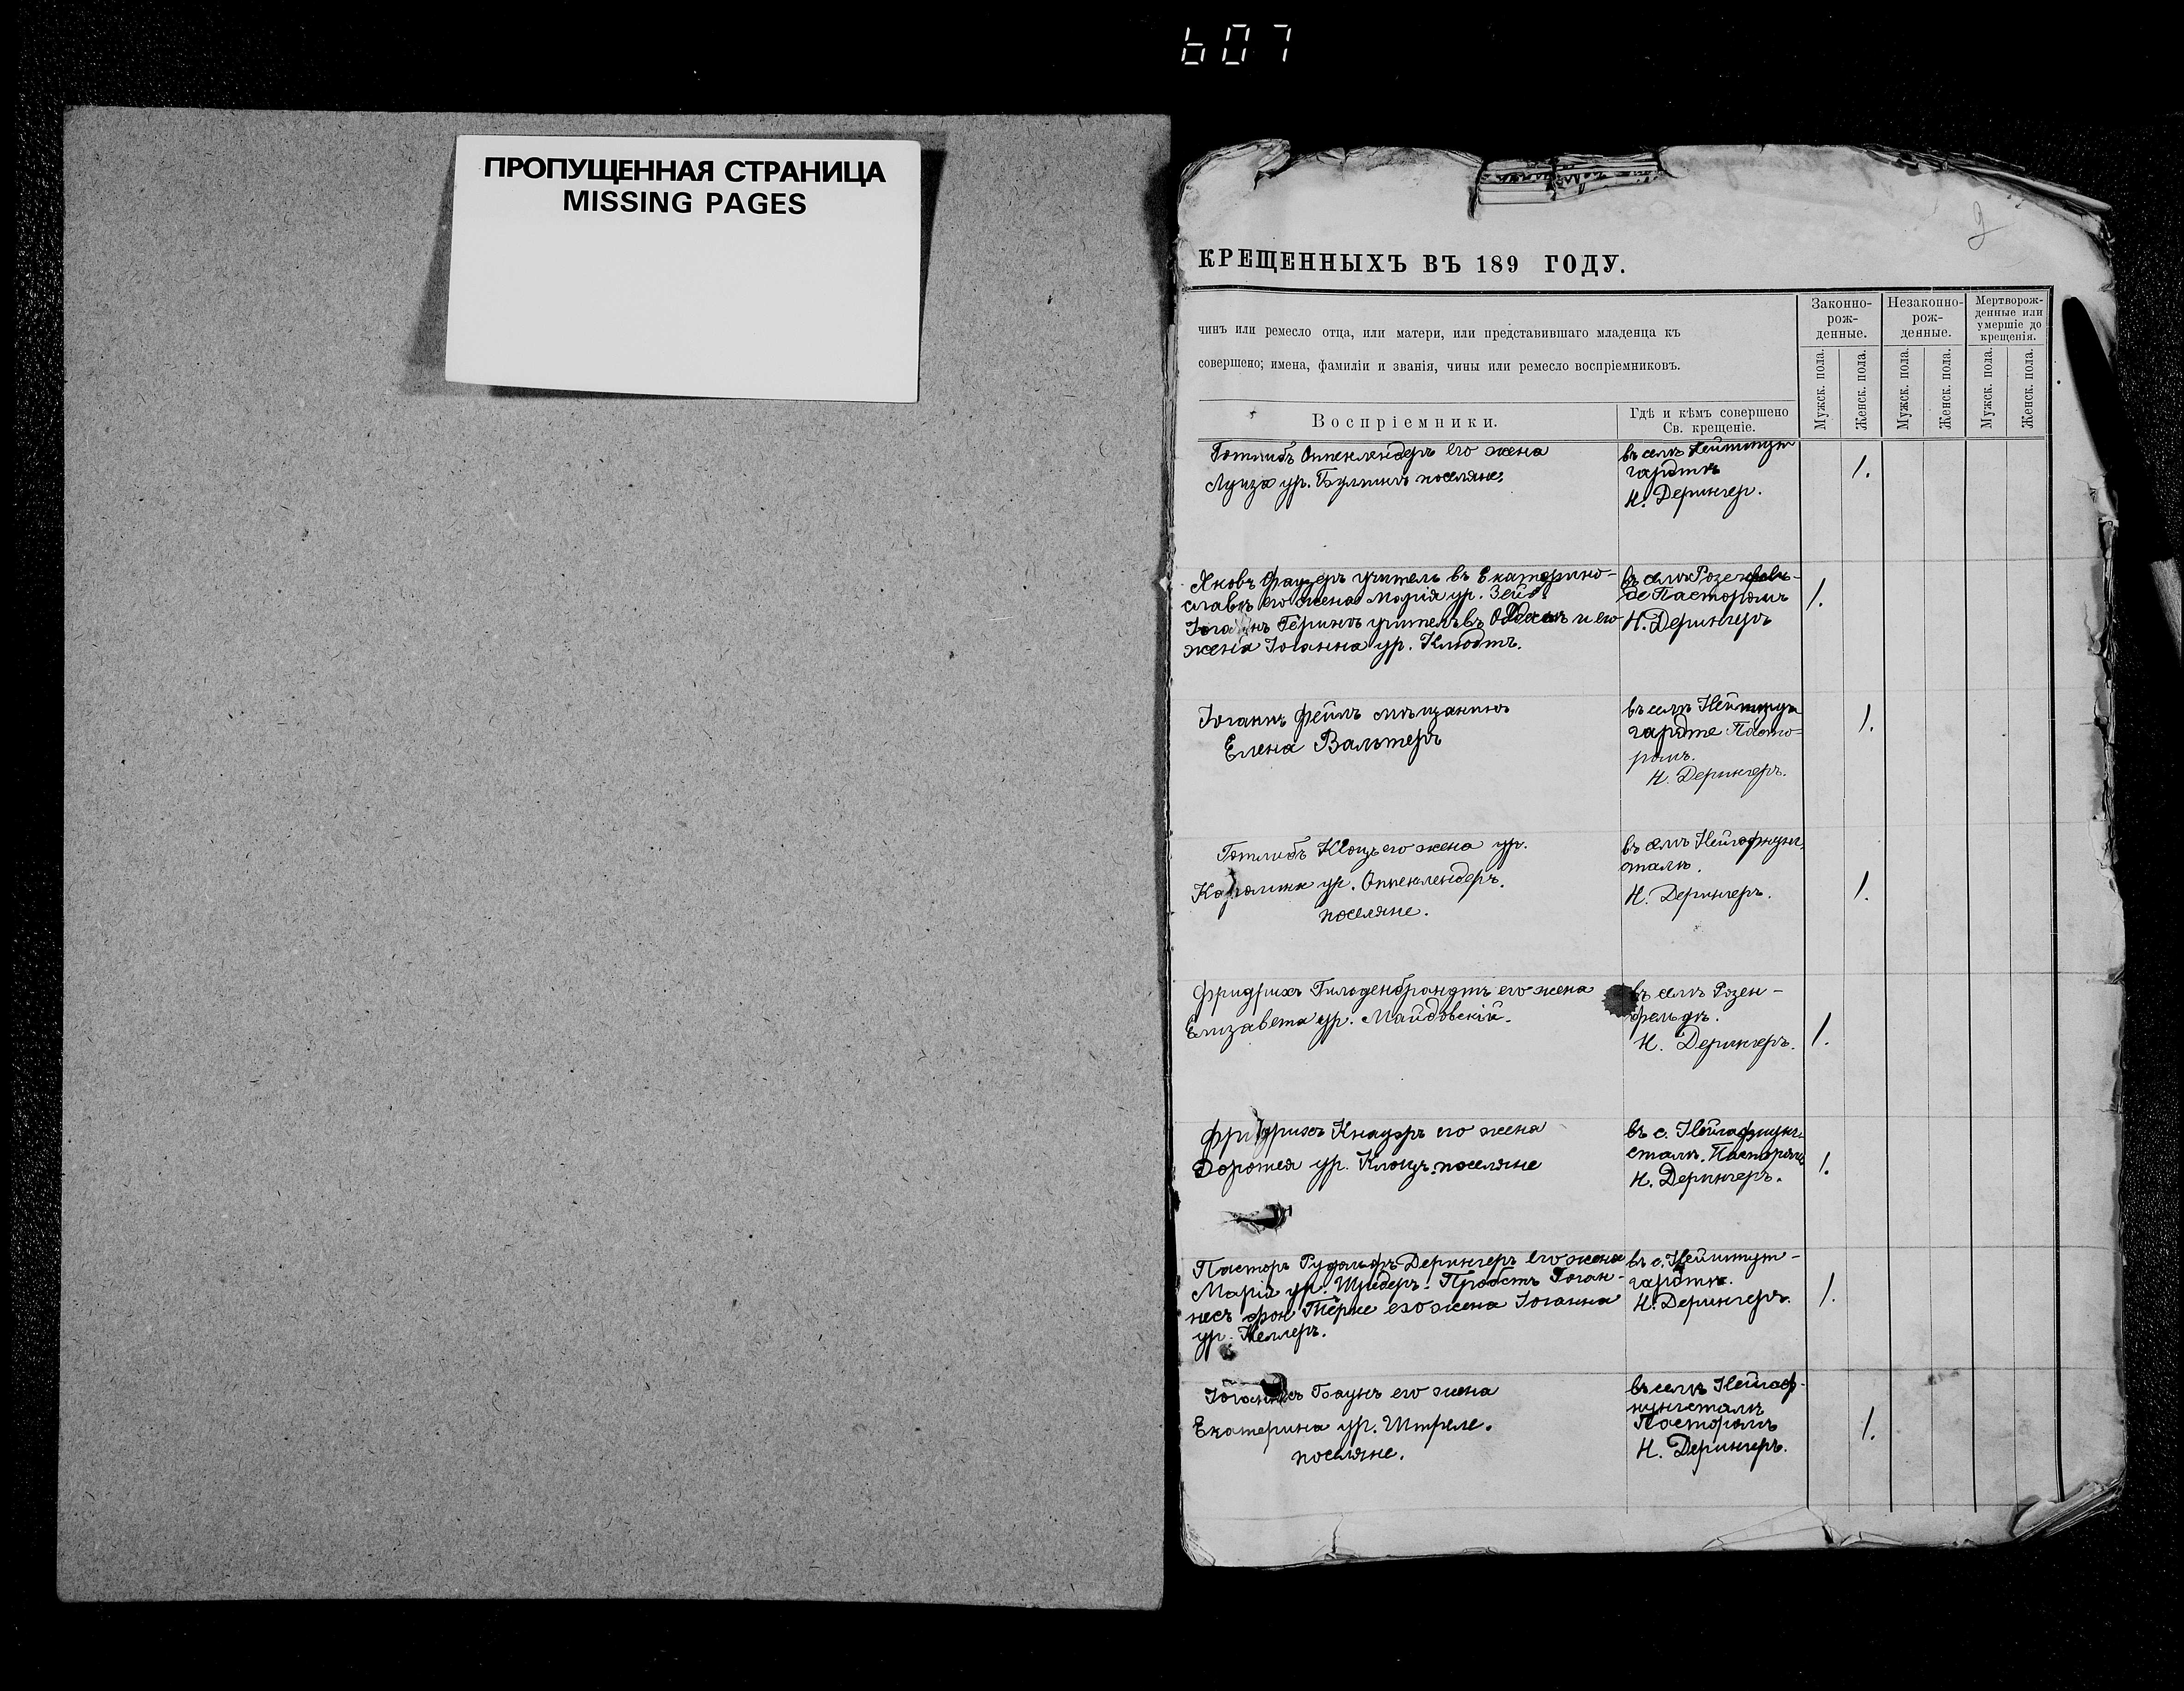 607
ПРОПУЩЕННАЯ СТРАНИЦА
MISSING PAGES
2
КРЕЩЕННЫХЪ ВЪ 189 ГОДУ.
чинъ или ремесло отца, или матери, или представившаго младенца къ
совершено; имена, фамиліи и званія, чины или ремесло воспріемниковъ.
Законно-
рож-
денные.
Незаконно-
рож-
денные.
Мертворож-
денные или
умершіе до
крещенія.
Мужск. пола.
Женск. пола.
Мужск. пола.
Женск. пола.
Мужск. пола.
Женск. пола.
Воспріемники.
Гдѣ и кѣмъ совершено
Св. крещеніе.
Готлибъ Оппенлендеръ его жена
Луиза ур. поселяне.
въ селѣ Нейштут
гардтѣ
Н. Дерингер.
1.
Яковъ Фаузеръ учитель въ Екатерино-
славѣ его жена Марія ур. Зейб.
Іоганнъ Герингъ учитель въ Одессѣ и его
жена Іоганна ур. Клюдтъ.
въ селѣ Розенфель-
де Пасторомъ
Н. Дерингеръ
1.
Іоганнъ Феймъ мѣщанинъ
Елена Вальтеръ
въ селѣ Нейштут
гардте Пасто-
ромъ.
Н. Дерингеръ.
1.
Готлибъ Клоцъ его жена ур.
Каролина ур. Оппенлендеръ.
поселяне.
въ селѣ Нейгофнунг
сталѣ.
Н. Дерингеръ.
1.
Фридрихъ Гильденбрандтъ его жена
Елизавета ур. Майдовскій.
въ селѣ Розен-
фельдѣ.
Н. Дерингеръ.
1.
Фридрихъ Кнауэръ его жена
Доротея ур. Клоцъ. поселяне
въ с. Нейгофнунг-
сталѣ. Пасторомъ
Н. Дерингеръ.
1.
Пасторъ Рудольфъ Дерингеръ его жена
Марія ур. Шредеръ. Пробстъ Іоган-
несъ фон Тёрне его жена Іоганна
ур. Келлеръ.
въ с. Нейштут-
гардтѣ.
Н. Дерингеръ.
1.
Іоганнесъ Баунъ его жена
Екатерина ур. Штреле.
поселяне.
въ селѣ Нейгоф-
нунгсталѣ
Пасторомъ
Н. Дерингеръ.
1.